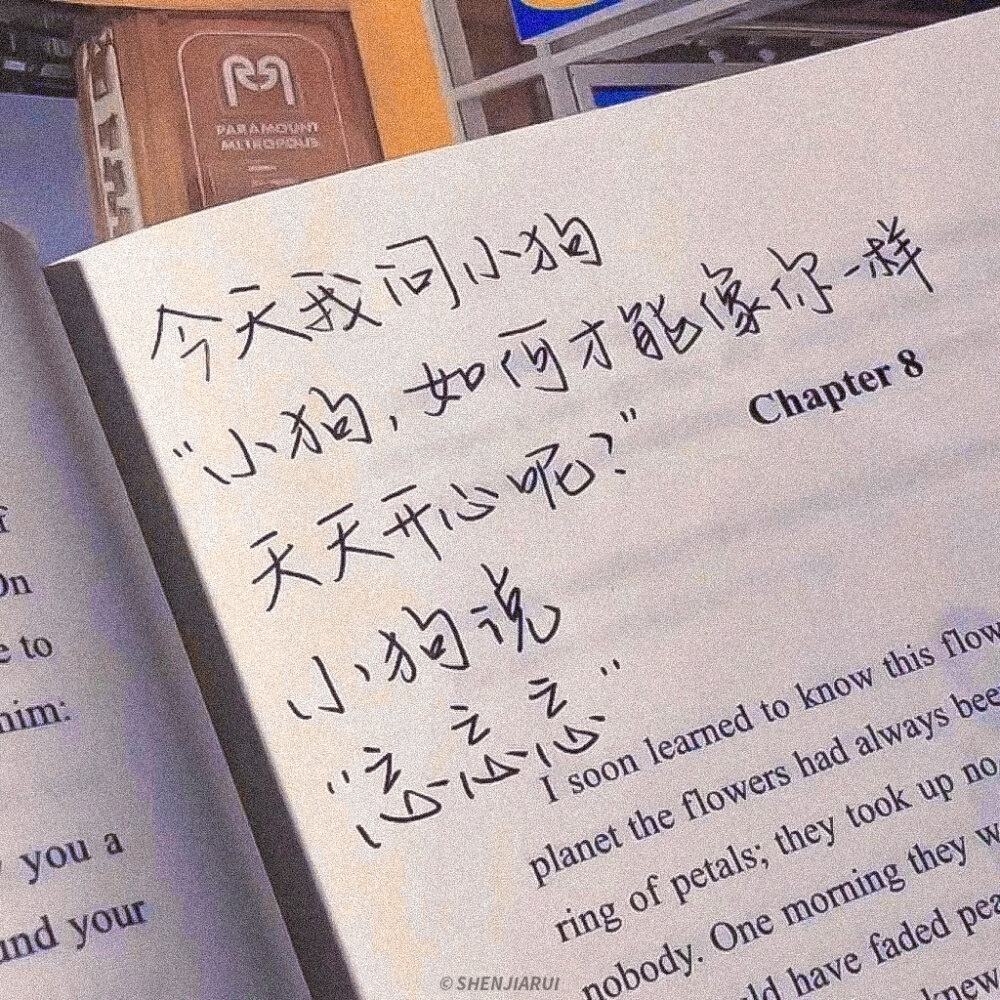 PARAMOUNT
METROPOLIS
今天我问小狗
“小狗,如何才能像你一样
天天开心呢?”
小狗说
“忘忘忘”
Chapter 8
I soon learned to know this flow
planet the flowers had always bee
ring of petals; they took up no
nobody. One morning they w
ld have faded pea
knew
f
On
e to
him:
you a
und your
© SHENJIARUI